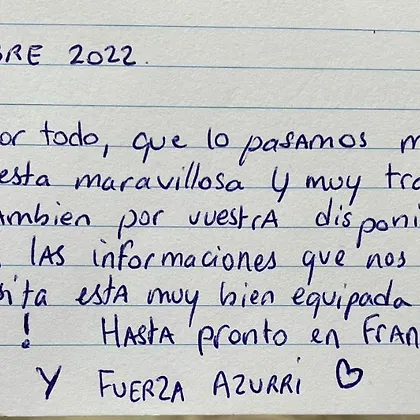 BRE 2022.
or todo, que lo pasamos m
esta maravillosa y muy tra
ambien por vuestra disponi
las informaciones que nos
ita esta muy bien equipada
! Hasta pronto en Fran
Y FUERZA AZURRI ♡